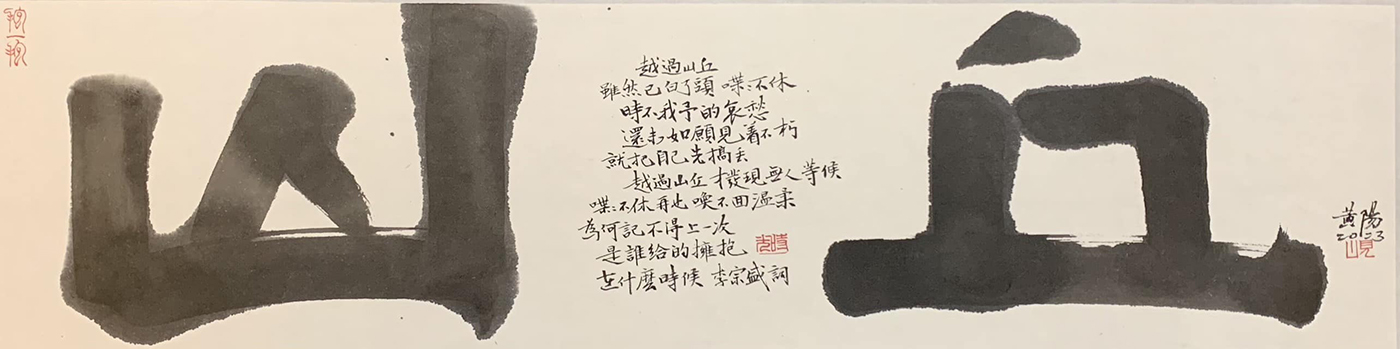 山
越過山丘
雖然已白了頭 喋〻不休
時不我予的哀愁
還未如願見着不朽
就把自己先搞丟
越過山丘 才發現無人等候
喋〻不休 再也喚不回溫柔
為何記不得上一次
是誰給的擁抱
在什麼時候 李宗盛詞
丘
黃陽
2023